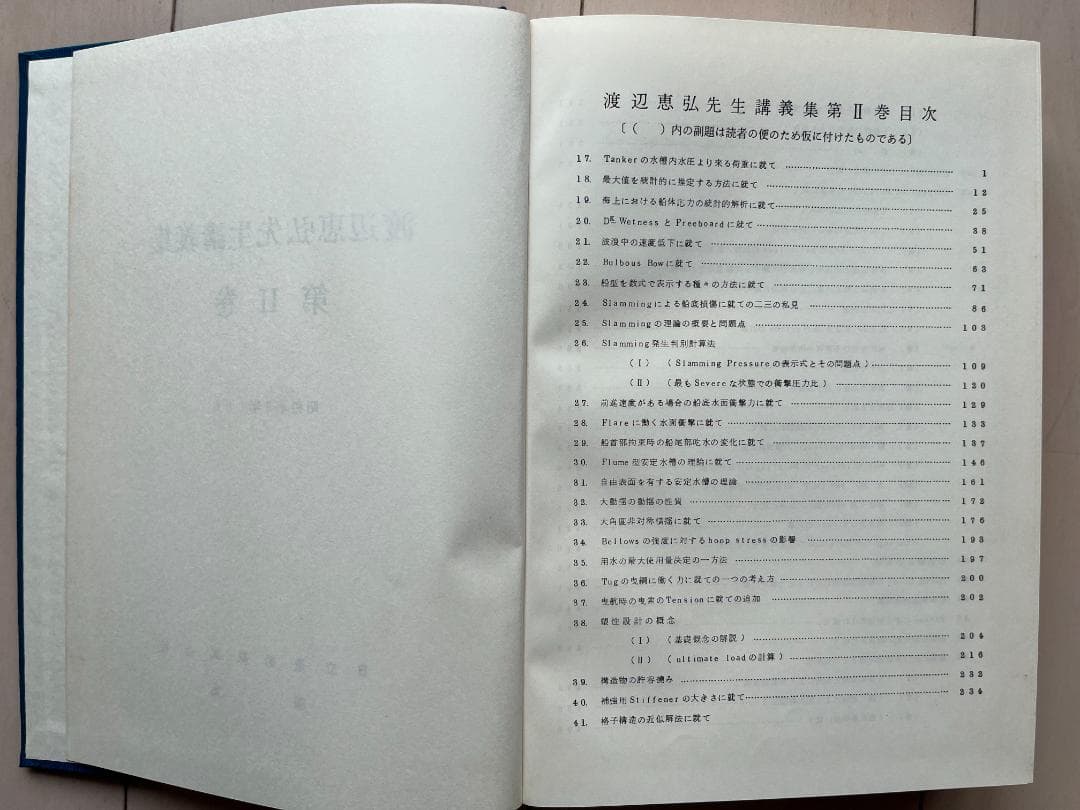 渡辺恵弘先生講義集第Ⅱ巻目次
〔( )内の副題は読者の便のため仮に付けたものである〕
17. Tankerの水槽内水圧より来る荷重に就て 1
18. 最大値を統計的に推定する方法に就て 12
19. 海上における船体応力の統計的解析に就て 25
20. Wetness と Freeboardに就て 38
21. 波浪中の速度低下に就て 51
22. Bulbous Bowに就て 63
23. 船型を数式で表示する種々の方法に就て 71
24. Slammingによる船底損傷に就ての二三の私見 86
25. Slammingの理論の概要と問題点 103
26. Slamming発生判別計算法
(Ⅰ) (Slamming Pressureの表示式とその問題点) 109
(Ⅱ) (最もSevereな状態での衝撃圧力比) 120
27. 前進速度がある場合の船底水面衝撃力に就て 129
28. Flareに働く水面衝撃に就て 133
29. 船首部拘束時の船尾部吃水の変化に就て 137
30. Flume型安定水槽の理論に就て 146
31. 自由表面を有する安定水槽の理論 161
32. 大動揺の動揺の性質 172
33. 大角度非対称横揺に就て 176
34. Bellowsの強度に対するhoop stressの影響 193
35. 用水の最大使用量決定の一方法 197
36. Tugの曳綱に働く力に就ての一つの考え方 200
37. 曳航時の曳索のTensionに就ての追加 202
38. 塑性設計の概念
(Ⅰ) (基礎概念の解説) 204
(Ⅱ) (ultimate loadの計算) 216
39. 構造物の許容撓み 232
40. 補強用Stiffenerの大きさに就て 234
41. 格子構造の近似解法に就て